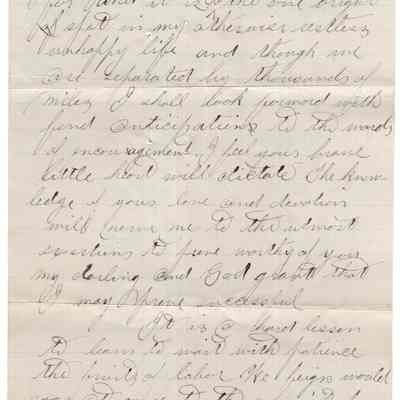 it is the one bright
spot in my otherwise restless
unhappy life and though we
are separated by thousands of
miles I shall look forword with
fond anticipations to the words
of encouragement. I feel your brave
little heart will dictate. The know
ledge of your love and devotion
will nerve me to the utmost
exertions to prove worthy of you
my darling and God grant that
I may prove successful
It is a hard lesson
to learn to wait with patience
the fruits of labor. We would